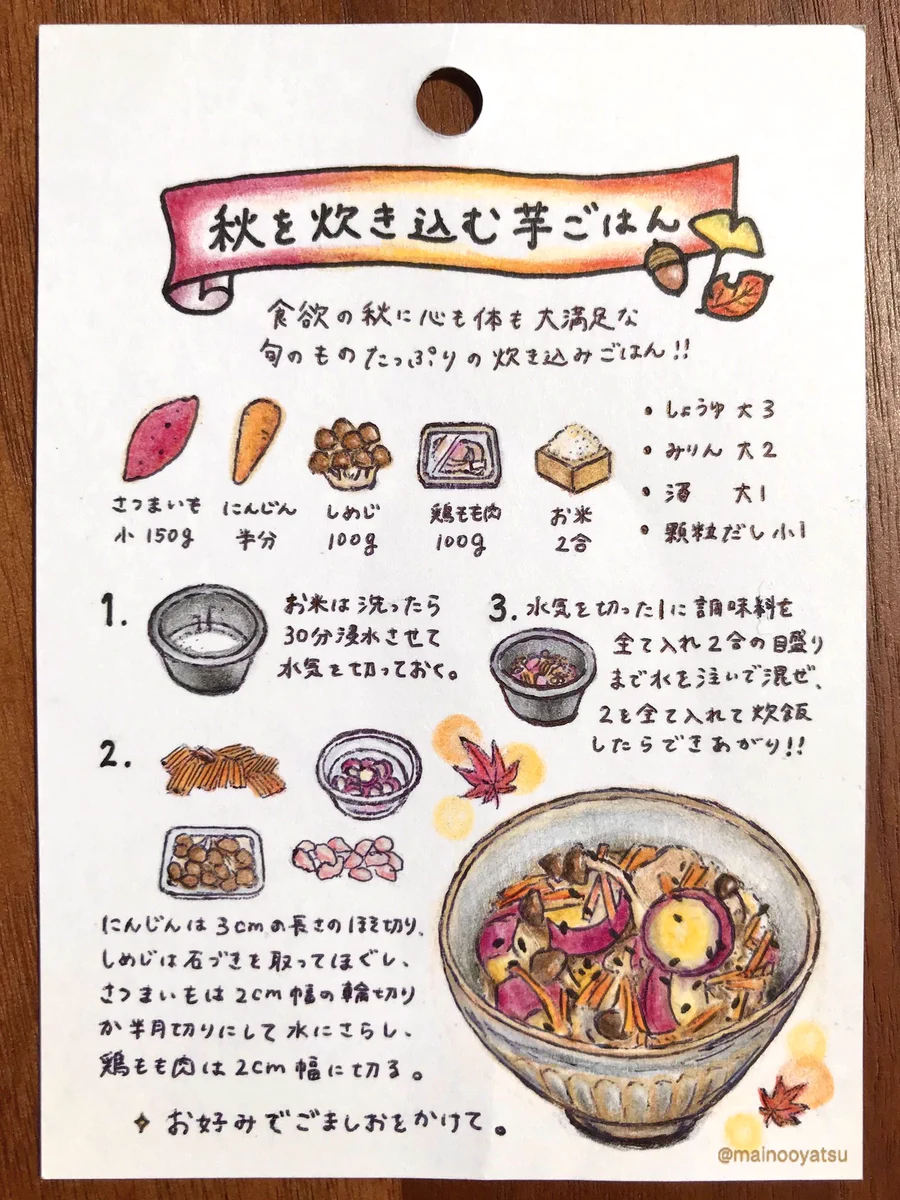 秋を炊き込む芋ごはん
食欲の秋に心も体も大満足な
旬のものたっぷりの炊き込みごはん!!
さつまいも
小 150g
にんじん
半分
しめじ
100g
鶏もも肉
100g
お米
2合
• しょうゆ 大3
• みりん 大2
• 酒 大1
• 顆粒だし 小1
1.
お米は洗ったら
30分浸水させて
水気を切っておく。
2.
にんじんは3cmの長さのほそ切り、
しめじは石づきを取ってほぐし、
さつまいもは2cm幅の輪切り
か半月切りにして水にさらし、
鶏もも肉は2cm幅に切る。
3. 水気を切った1に調味料を
全て入れ2合の目盛り
まで水を注いで混ぜ、
2を全て入れて炊飯
したらできあがり!!
✦ お好みでごましおをかけて。
@mainooyatsu